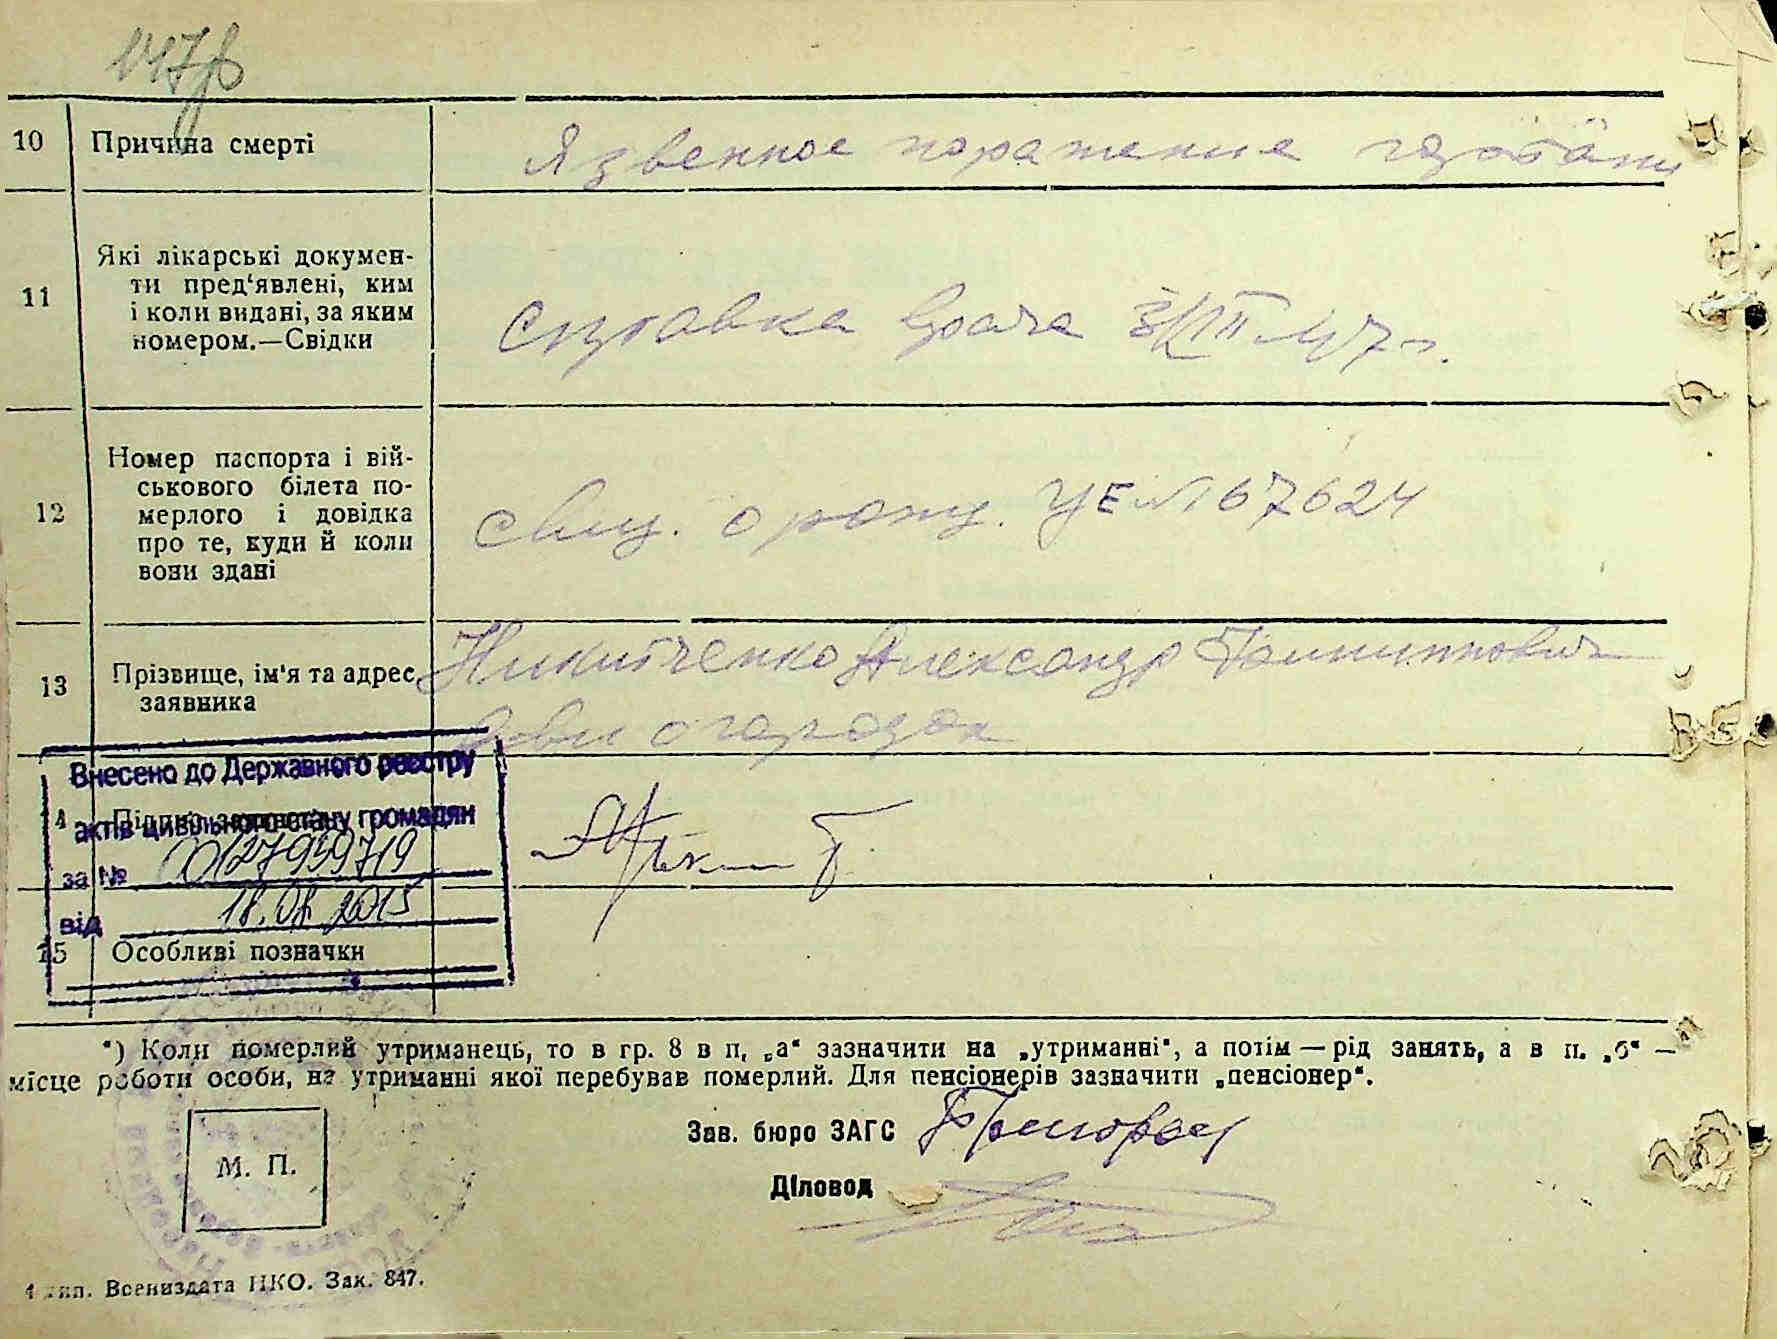 10 Причина смерті Язвенное поражение гортани
11 Які лікарські докумен-
ти пред'явлені, ким
і коли видані, за яким
номером.—Свідки
справка врача 3/VIII-47г.
12 Номер паспорта і вій-
ськового білета по-
мерлого і довідка
про те, куди й коли
вони здані
свид. о рожд. УЕ №67624
13 Прізвище, ім'я та адрес
заявника
Никитченко Александр
Внесено до Державного реєстру
актів цивільного стану громадян
за № 00127959719
від 18.08.2015
15 Особливі позначки
*) Коли померлий утриманець, то в гр. 8 в п. „а“ зазначити на „утриманні“, а потім — рід занять, а в п. „б“ —
місце роботи особи, на утриманні якої перебував померлий. Для пенсіонерів зазначити „пенсіонер“.
Зав. бюро ЗАГС
Діловод
М. П.
Всениздата НКО. Зак. 847.